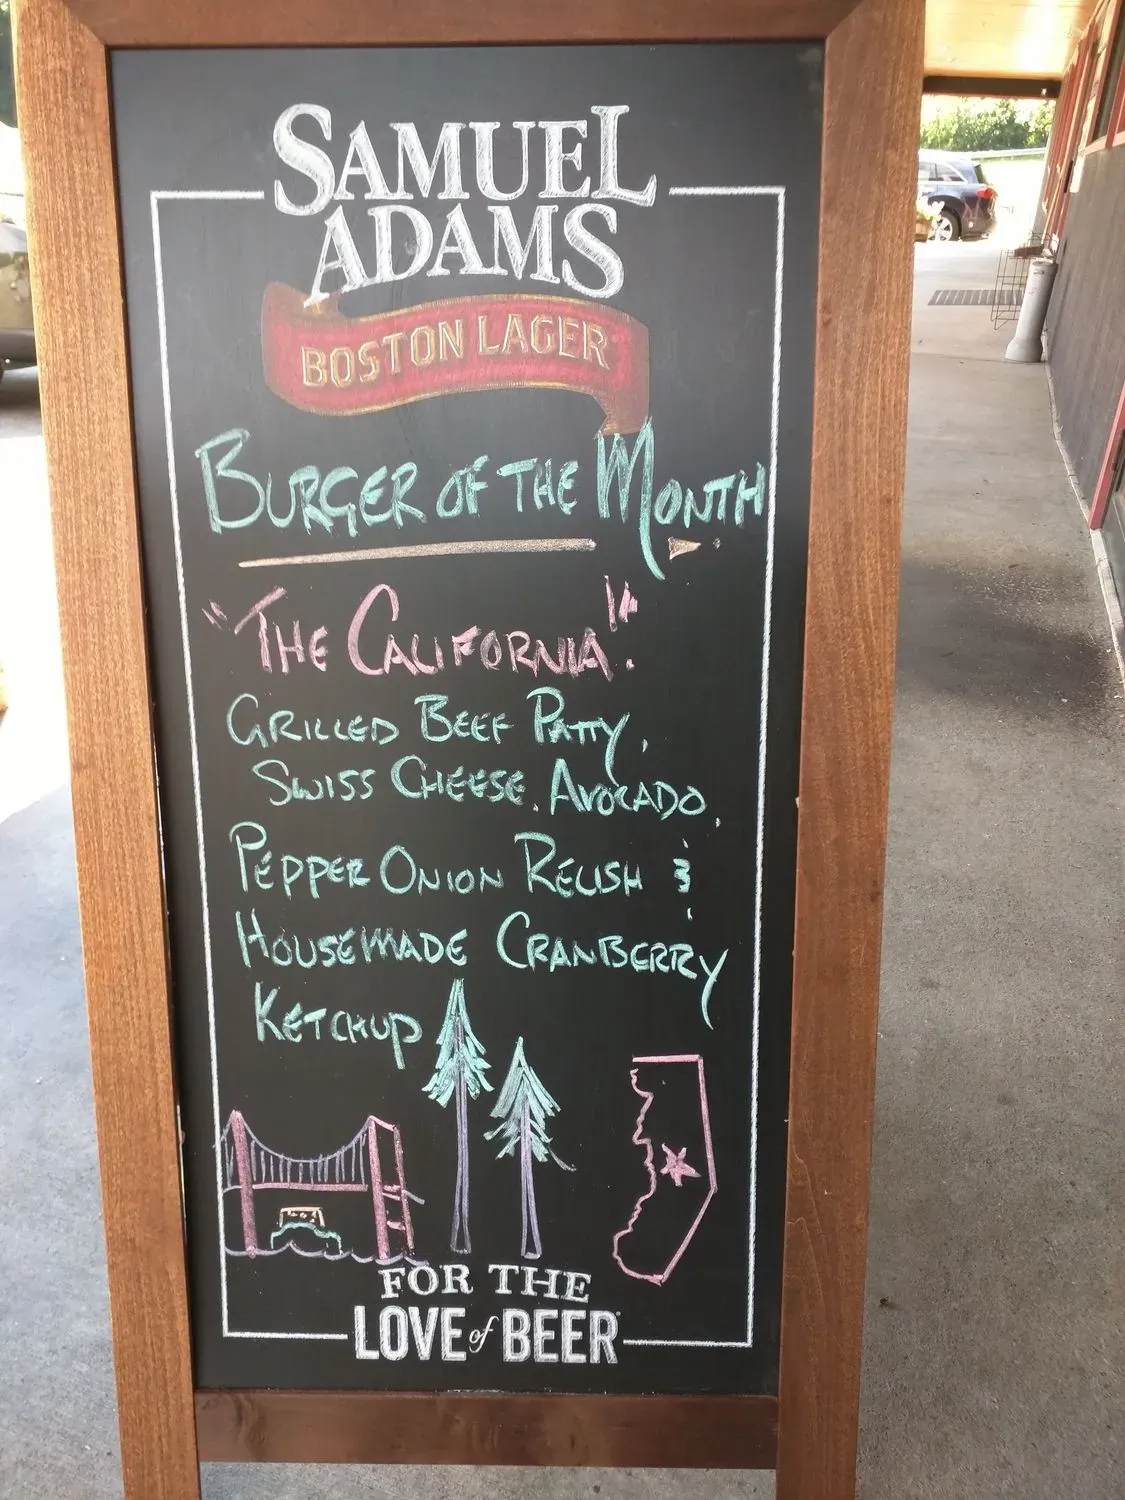 SAMUEL
ADAMS
BOSTON LAGER
BURGER OF THE MONTH
"THE CALIFORNIA".
GRILLED BEEF PATTY,
SWISS CHEESE, AVOCADO,
PEPPER ONION RELISH &
HOUSEMADE CRANBERRY
KETCHUP
FOR THE
LOVE of BEER